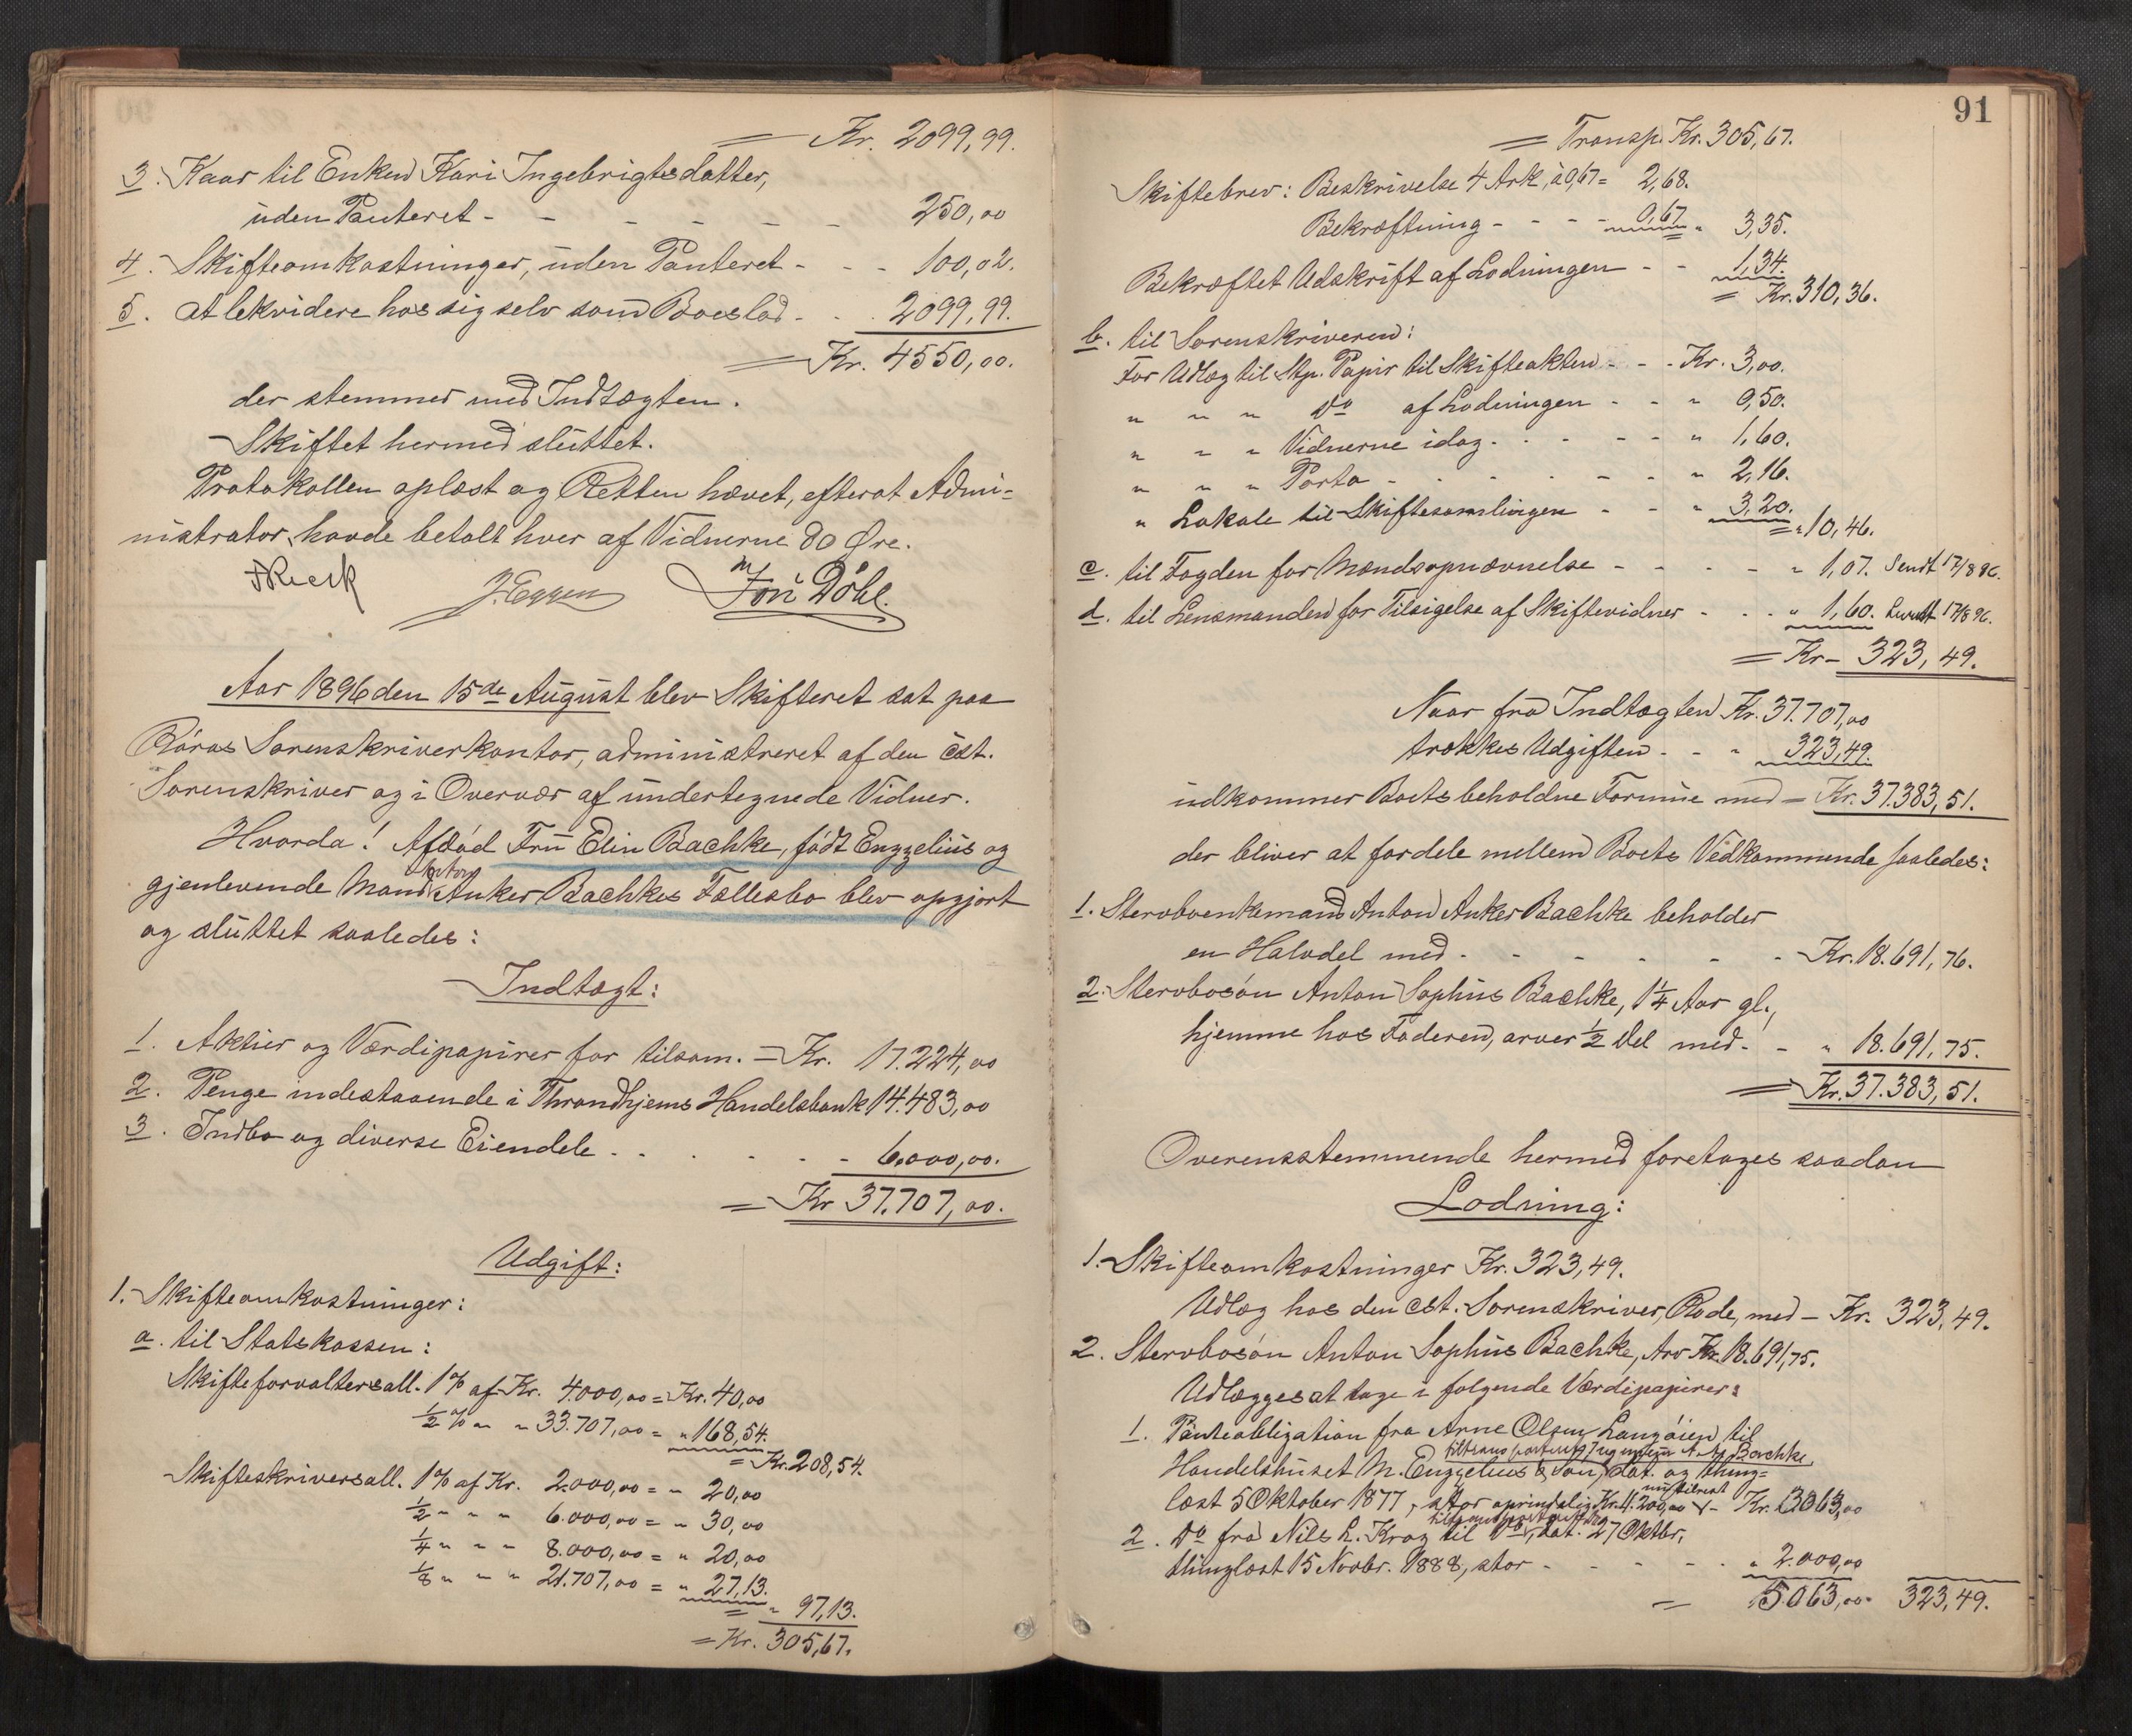 = Kr. 2099,99.
3. Kaar til Enken Kari Ingebrigtsdatter,
uden Panteret - - - - - - 250,00
4. Skifteomkostninger, uden Panteret - - - 100,02.
5. At lekvidere hos sig selv som Boeslod - - - 2099,99.
= Kr. 4550,00.
der stemmer med Indtægten.
Skiftet hermed sluttet.
Protokollen oplæst og Retten hævet, efterat Admi-
nistrator havde betalt hver af Vidnerne 80 Øre.
J. Eggen Jon Döhl.
Aar 1896 den 15de August blev Skifteret sat paa
Röros Sorenskriverkontor, administreret af den cst.
Sorenskriver og i Overvær af undertegnede Vidner.
Hvorda! Afdød Fru Elin Bachke, født Engzelius og
gjenlevende Mand Anton Anker Bachkes Fællesbo blev opgjort
og sluttet saaledes:
Indtægt:
1. Aktier og Værdipapirer for tilsam. = Kr. 17.224,00
2. Penge indestaaende i Throndhjems Handelsbank 14.483,00
3. Indbo og diverse Eiendele - - - - - - 6.000,00.
= Kr 37.707,00.
Udgift:
1. Skifteomkostninger:
a. til Statskassen:
Skifteforvaltersall. 1% af Kr. 4.000,00 = Kr. 40,00
½ % " " 33.707,00 = " 168,54.
= Kr. 208,54.
Skifteskriversall. 1% af Kr. 2.000,00 = " 20,00
½ " " " 6.000,00 = " 30,00
¼ " " " 8.000,00 = " 20,00
⅛ " " " 21.707,00 = " 27,13.
= " 97,13.
= Kr. 305,67.
91
= Transp. Kr. 305,67.
Skiftebrev: Beskrivelse 4 Ark, à 0,67 = 2,68.
Bekræftning - - - - 0,67 " 3,35.
Bekræftet Udskrift af Lodningen - - 1,34.
= Kr. 310,36.
b. til Sorenskriveren:
For Udlæg til Stp. Papir til Skifteakten - - - Kr. 3,00.
" " " do af Lodningen - - " 0,50.
" " " Vidnerne idag - - - - - " 1,60.
" " " Porto - - - - - - " 2,16.
" Lokale til Skiftesamlingen - - - " 3,20.
= " 10,46.
c. til Fogden for Mandsopnævnelse - - - - - " 1,07. Sendt 17/8 96.
d. til Lensmanden for Tilsigelse af Skiftevidner - - - " 1,60. Sendt 17/8 96.
= Kr - 323,49.
Naar fra Indtægten Kr. 37.707,00
trækkes Udgiften - - " 323,49.
udkommer Boets beholdne Formue med = Kr. 37.383,51.
der bliver at fordele mellem Boets Vedkommende saaledes:
1. Stervboenkemand Anton Anker Bachke beholder
en Halvdel med - - - - - - - Kr. 18.691,76.
2. Stervbosön Anton Sophus Bachke, 1¼ Aar gl.,
hjemme hos Faderen, arver ½ Del med - - " 18.691,75.
= Kr. 37.383,51.
Overensstemmende hermed foretages saadan
Lodning:
1. Skifteomkostninger Kr. 323,49.
Udlæg hos den cst. Sorenskriver, Rode, med - Kr. 323,49.
2. Stervbosön Anton Sophus Bachke, Arv Kr. 18.691,75.
Udlægges at tage i følgende Værdipapirer:
1. Panteobligation fra Arne Olsen Langöien til
tiltransporteret Ingeniør A. A. Bachke
Handelshuset M. Engzelius & Søn, dat. og thing-
læst 5 Oktober 1877, stor oprindelig Kr. 4.200,00 nu tilrest - Kr. 3063,00
2. Do fra Nils L. Krog til Do, dat. 27 Oktbr,
thinglæst 15 Novbr. 1888, stor - - - - - " 2.000,00
= 5.063,00. 323,49.